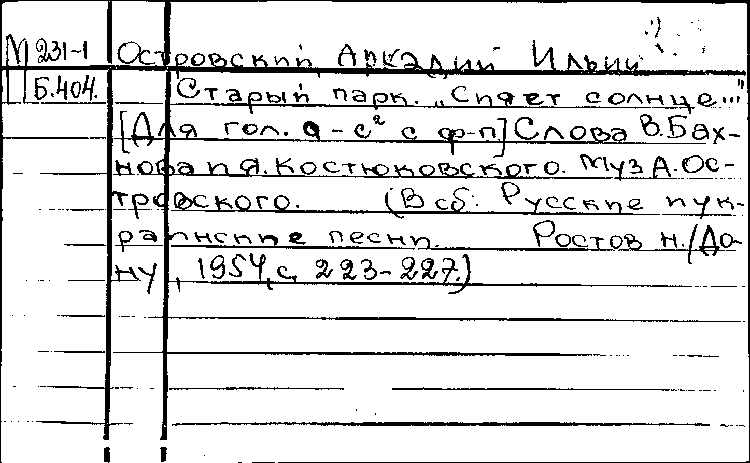 М 231-1 Островский, Аркадий Ильич
Б.404. Старый парк. „Сияет солнце..."
[Для гол. a - c² с ф-п] Слова В.Бах-
нова и Я.Костюковского. Муз А.Ос-
тровского. (В сб: Русские и ук-
раинские песни. Ростов н./До-
ну, 1954, с. 223-227.)